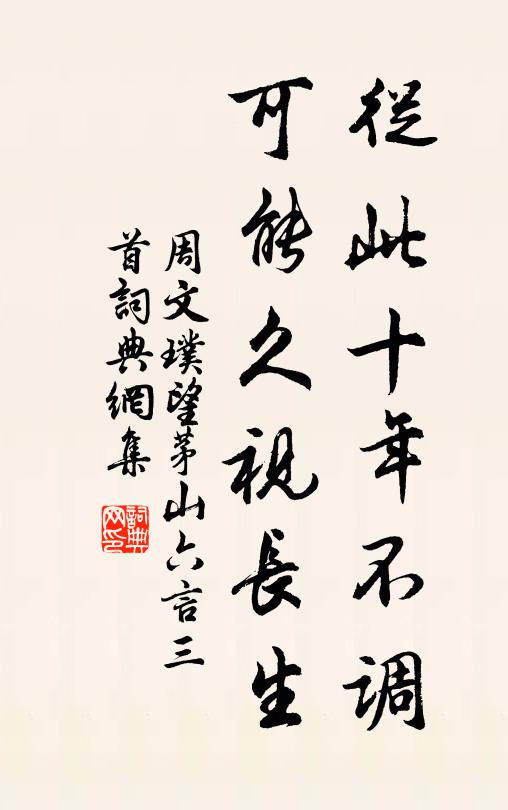 從此十年不調
可能久視長生
周文璞望茅山六言三
首詞典網集
詞典
网印